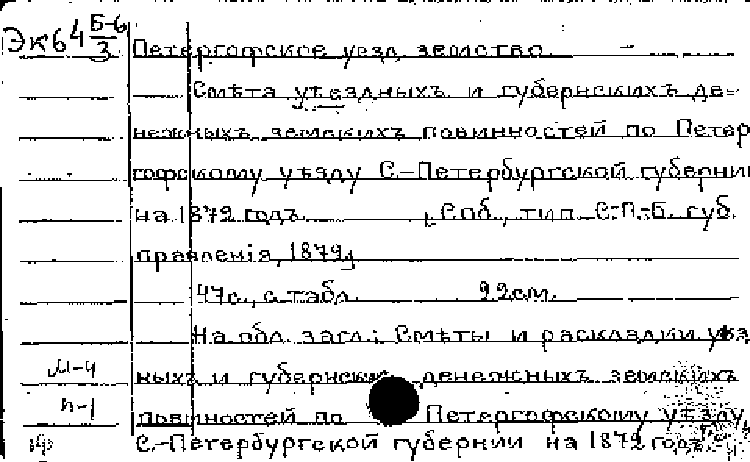 Эк64 Б-6/3
Петергофское уезд. земство.
Смѣта уѣздныхъ и губернскихъ де-
нежныхъ земскихъ повинностей по Петер
гофскому уѣзду С.-Петербургской губернии
на 1872 годъ. Спб., тип. С.-П.-Б. губ.
правленія, 1872.
47с., с табл. 22см.
На обл. загл.: Смѣты и раскладки уѣзд
ныхъ и губернских денежныхъ земскихъ
М-4
повинностей по Петергофскому уѣзду,
п-1
С.-Петербургской губернии на 1872 годъ.